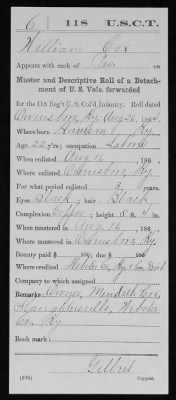 C | 118 | U.S.C.T.
William Cox
Appears with rank of Pvt. on
Muster and Descriptive Roll of a Detach-
ment of U. S. Vols. forwarded
for the 118 Reg't U.S. Col'd Infantry. Roll dated
Owensboro, Ky. Aug 26, 1864.
Where born Henderson, Ky.
Age 22 y'rs; occupation Laborer
When enlisted Aug 16, 186
Where enlisted Owensboro, Ky.
For what period enlisted 3 years.
Eyes Black; hair Black
Complexion; height 5 ft. 4 in.
When mustered in Aug 16, 186
Where mustered in Owensboro, Ky.
Bounty paid $ 100; due $ 100
Where credited Webster Co, Ky. Con. Dist
Company to which assigned
Remarks: Owner, Meredith Cox,
Slaughtersville, Webster
Co. Ky
Book mark:
(339) Copyist.